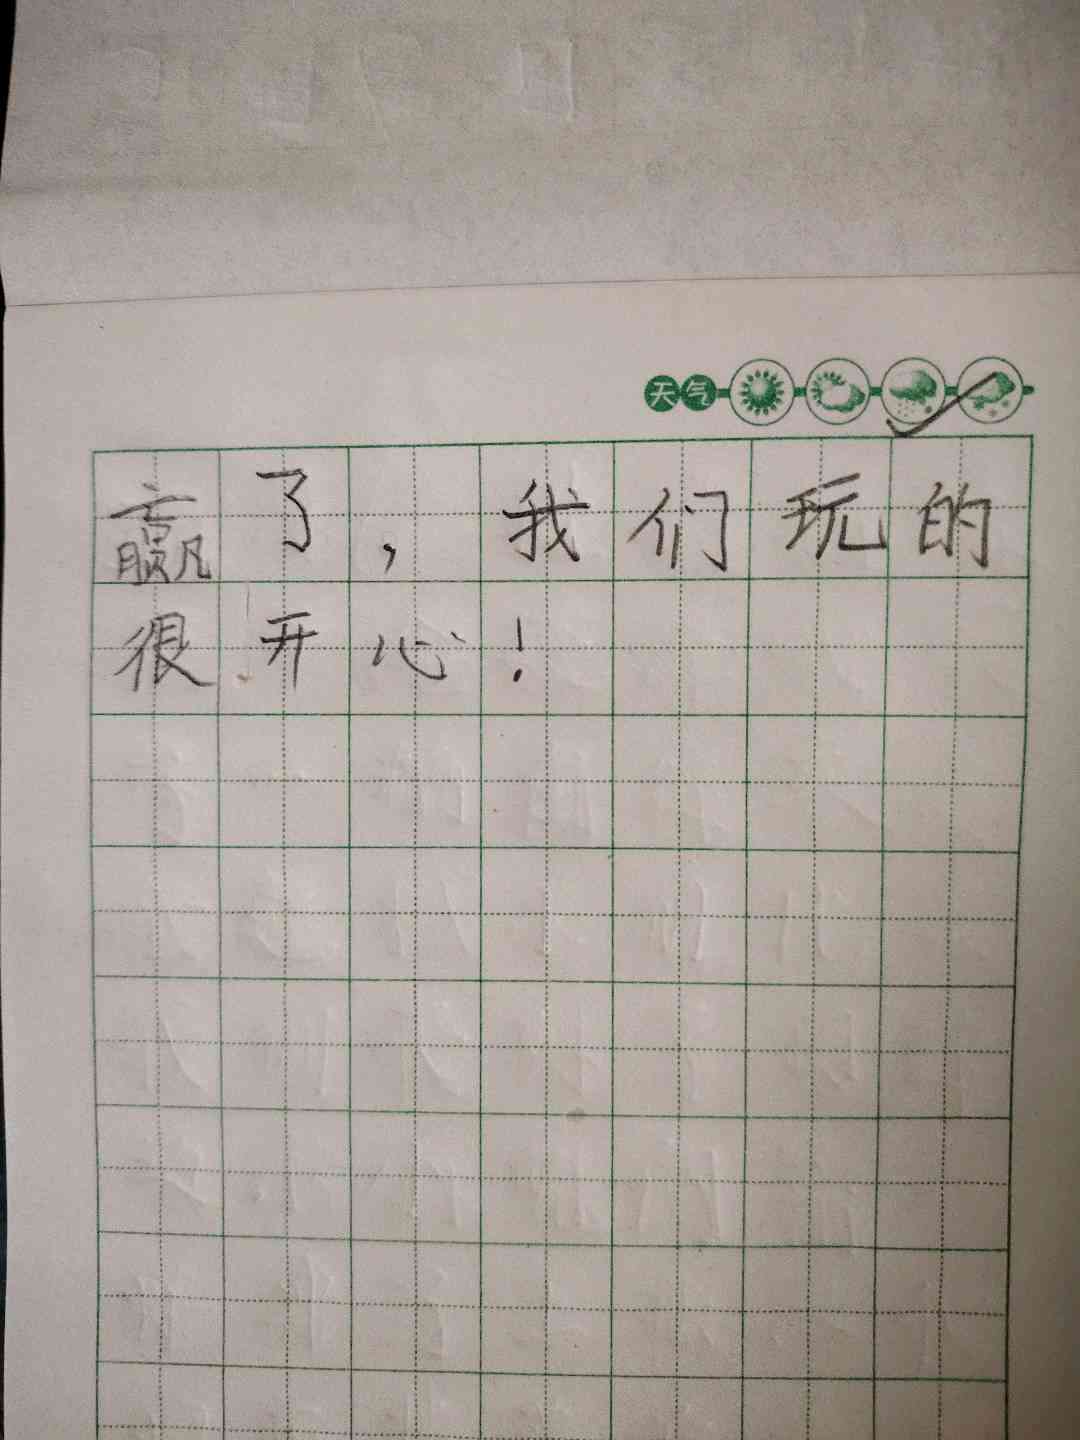 天气
赢了,我们玩的
很开心!